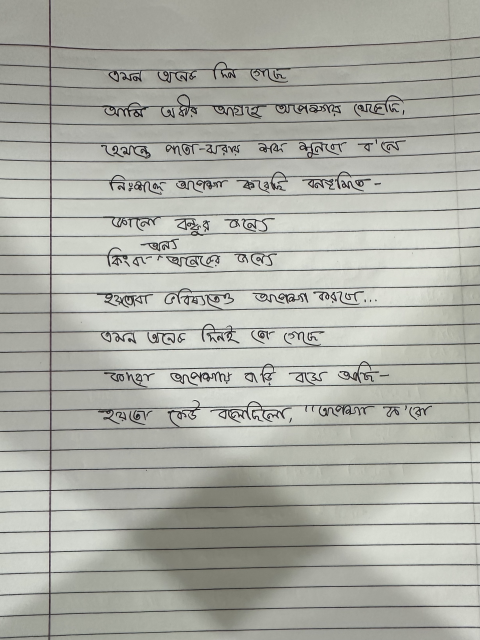 এমন অনেক দিন গেছে
আমি অধীর আগ্রহে অপেক্ষায় থেকেছি,
হেমন্তে পাতা-ঝরার শব্দ শুনবো ব'লে
নিঃশব্দে অপেক্ষা করেছি বনভূমিতে-
কোনো বন্ধুর জন্যে
কিংবা অন্য অনেকের জন্যে
হয়তোবা ভবিষ্যতেও অপেক্ষা করবো...
এমন অনেক দিনই তো গেছে
কারো অপেক্ষায় বাড়ি বসে আছি-
হয়তো কেউ বলেছিলো, "অপেক্ষা ক'রো